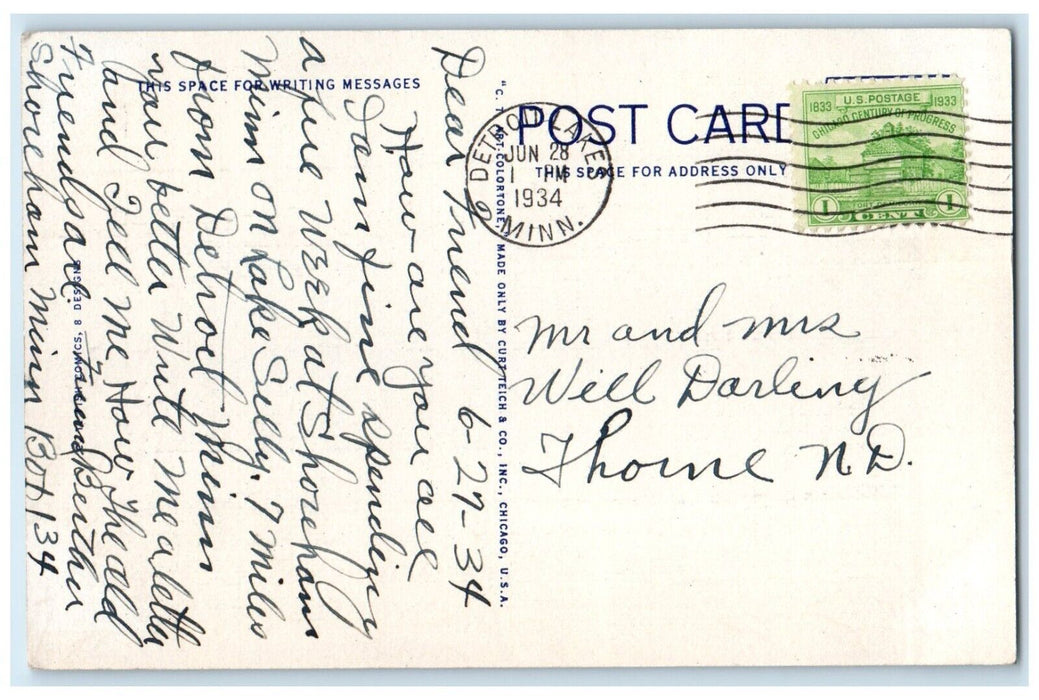 THIS SPACE FOR WRITING MESSAGES
Dear Friend 6-27-34
How are you all
I am fine spending
a fine Week at Shoreham
Minn on Lake Sally. 7 miles
from Detroit Minn
you better Write me a letter
and Tell me How The old
Friends are.
Shoreham Minn Box 134
"C. T. ART-COLORTONE" MADE ONLY BY CURT TEICH & CO., INC., CHICAGO, U.S.A.
POST CARD
THIS SPACE FOR ADDRESS ONLY
DETROIT LAKES
JUN 28
1 PM
1934
MINN.
1833 U.S. POSTAGE 1933
CHICAGO CENTURY OF PROGRESS
1 CENT 1
Mr and Mrs
Will Darling
Thorne N.D.